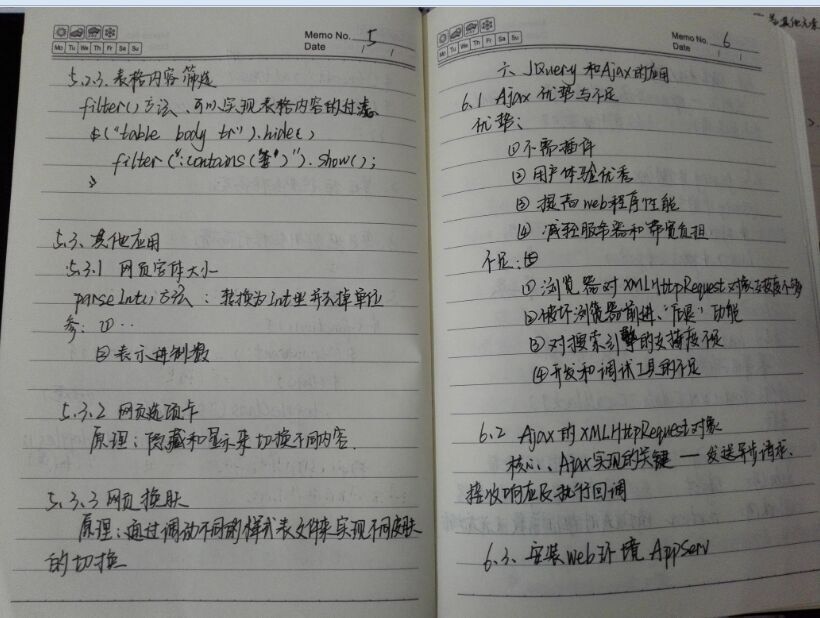 Memo No. 5
Mo Tu We Th Fr Sa Su
Date / /
5.2.3. 表格内容筛选
filter()方法、可以实现表格内容的过滤
$("table body tr").hide()
filter(":contains()").show();
5.3. 其他应用
5.3.1 网页字体大小
parseInt()方法：转换为Int型并去掉单位
参：①··
②表示进制数
5.3.2 网页选项卡
原理：隐藏和显示来切换不同内容.
5.3.3 网页换肤
原理：通过调动不同的样式表文件来实现不同皮肤
的切换
一 其他元素
Memo No. 6
Mo Tu We Th Fr Sa Su
Date / /
六、JQuery 和Ajax的应用
6.1 Ajax 优势与不足
优势：
①不需插件
②用户体验优秀
③提高web程序性能
④减轻服务器和带宽负担
不足：
①浏览器对XMLHttpRequest对象支持度不够
②破坏浏览器前进、"后退"功能
③对搜索引擎的支持度不足
④开发和调试工具的不足
6.2 Ajax的XMLHttpRequest对象
核心、Ajax实现的关键 — 发送异步请求、
接收响应及执行回调
6.3、安装web环境 AppServ